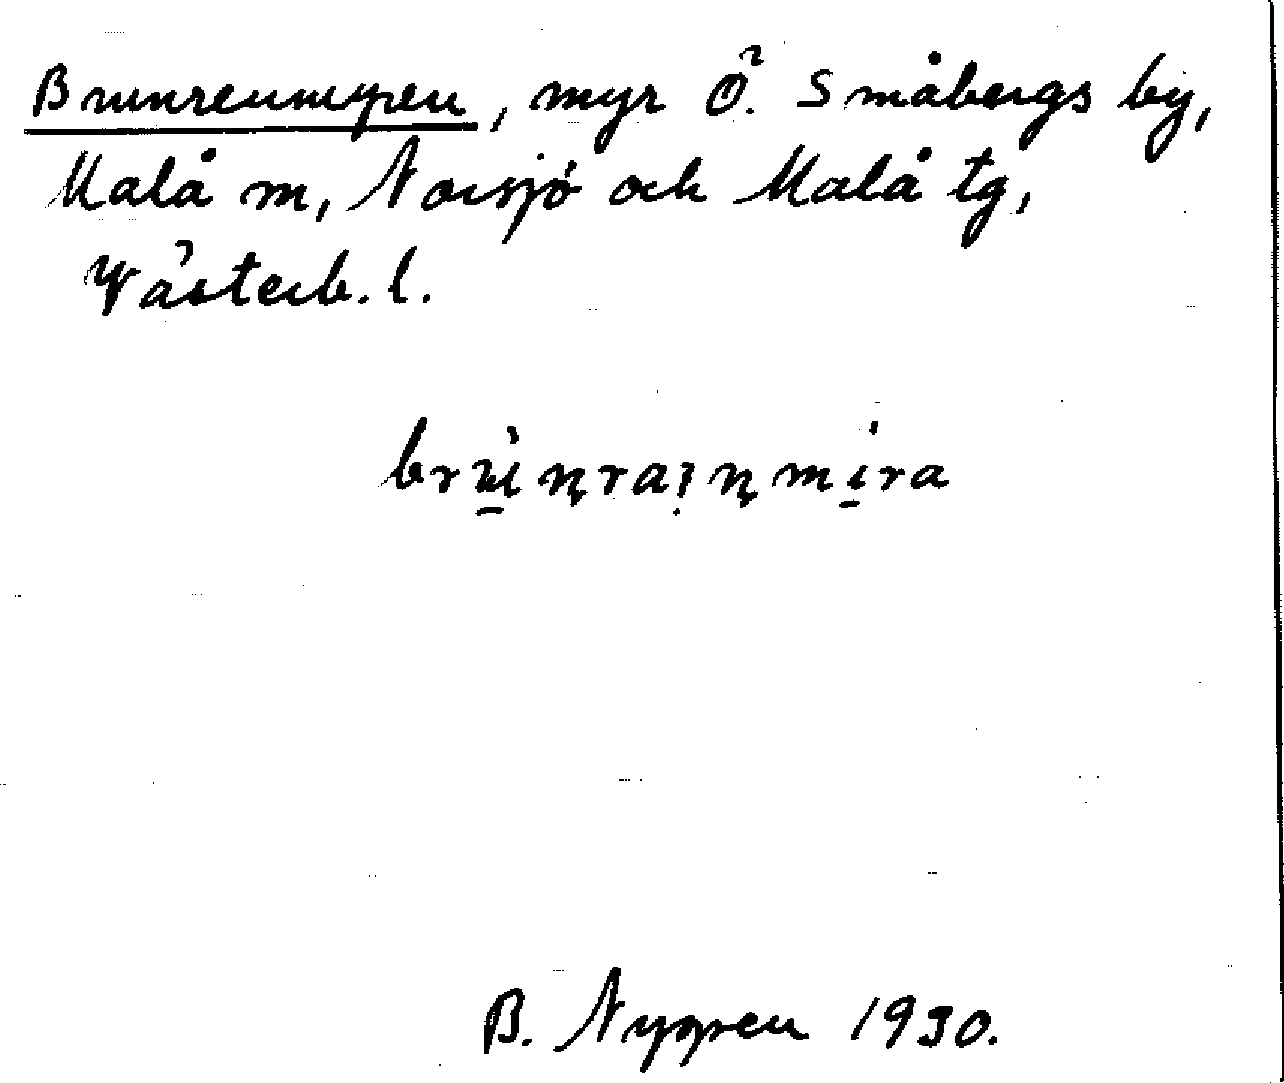 Brunrenmyren, myr Ö. Småbergs by,
Malå sn, Norsjö och Malå tg,
Västerb. l.
B. Nygren 1930.